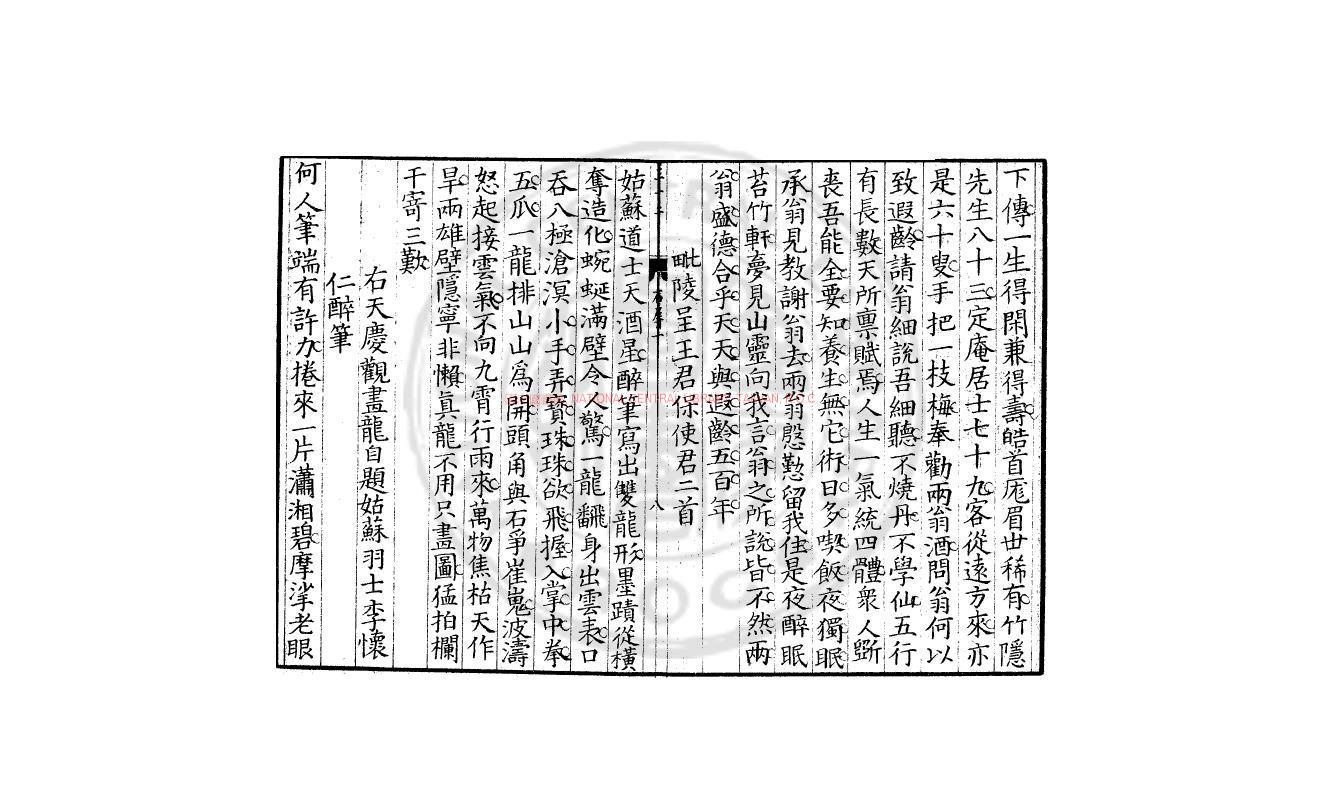 下傳一生得閑兼得壽皓首厖眉世稀有竹隱
先生八十三定庵居士七十九客從遠方來亦
是六十叟手把一技梅奉勸兩翁酒問翁何以
致遐齡請翁細説吾細聽不燒丹不學仙五行
有長數天所禀賦焉人生一氣統四體衆人斲
喪吾能全要知養生無它術日多喫飯夜獨眠
承翁見教謝翁去兩翁慇懃留我住是夜醉眠
苔竹軒夢見山靈向我言翁之所説皆不然兩
翁盛德合乎天天與遐齡五百年
毗陵呈王君保使君二首
八
姑蘇道士天酒星醉筆寫出雙龍形墨蹟從橫
奪造化蜿蜒滿壁令人驚一龍翻身出雲表口
吞八極滄溟小手弄寳珠珠欲飛握入掌中拳
五爪一龍排山山爲開頭角與石爭崔嵬波濤
怒起接雲氣不向九霄行雨來萬物焦枯天作
旱兩雄壁隱寧非懶眞龍不用只畫圖猛拍欄
干寄三歎
右天慶觀畫龍自題姑蘇羽士李懷
仁醉筆
何人筆端有許力捲來一片瀟湘碧摩挲老眼
NATIONAL CENTRAL LIBRARY, TAIWAN, R.O.C